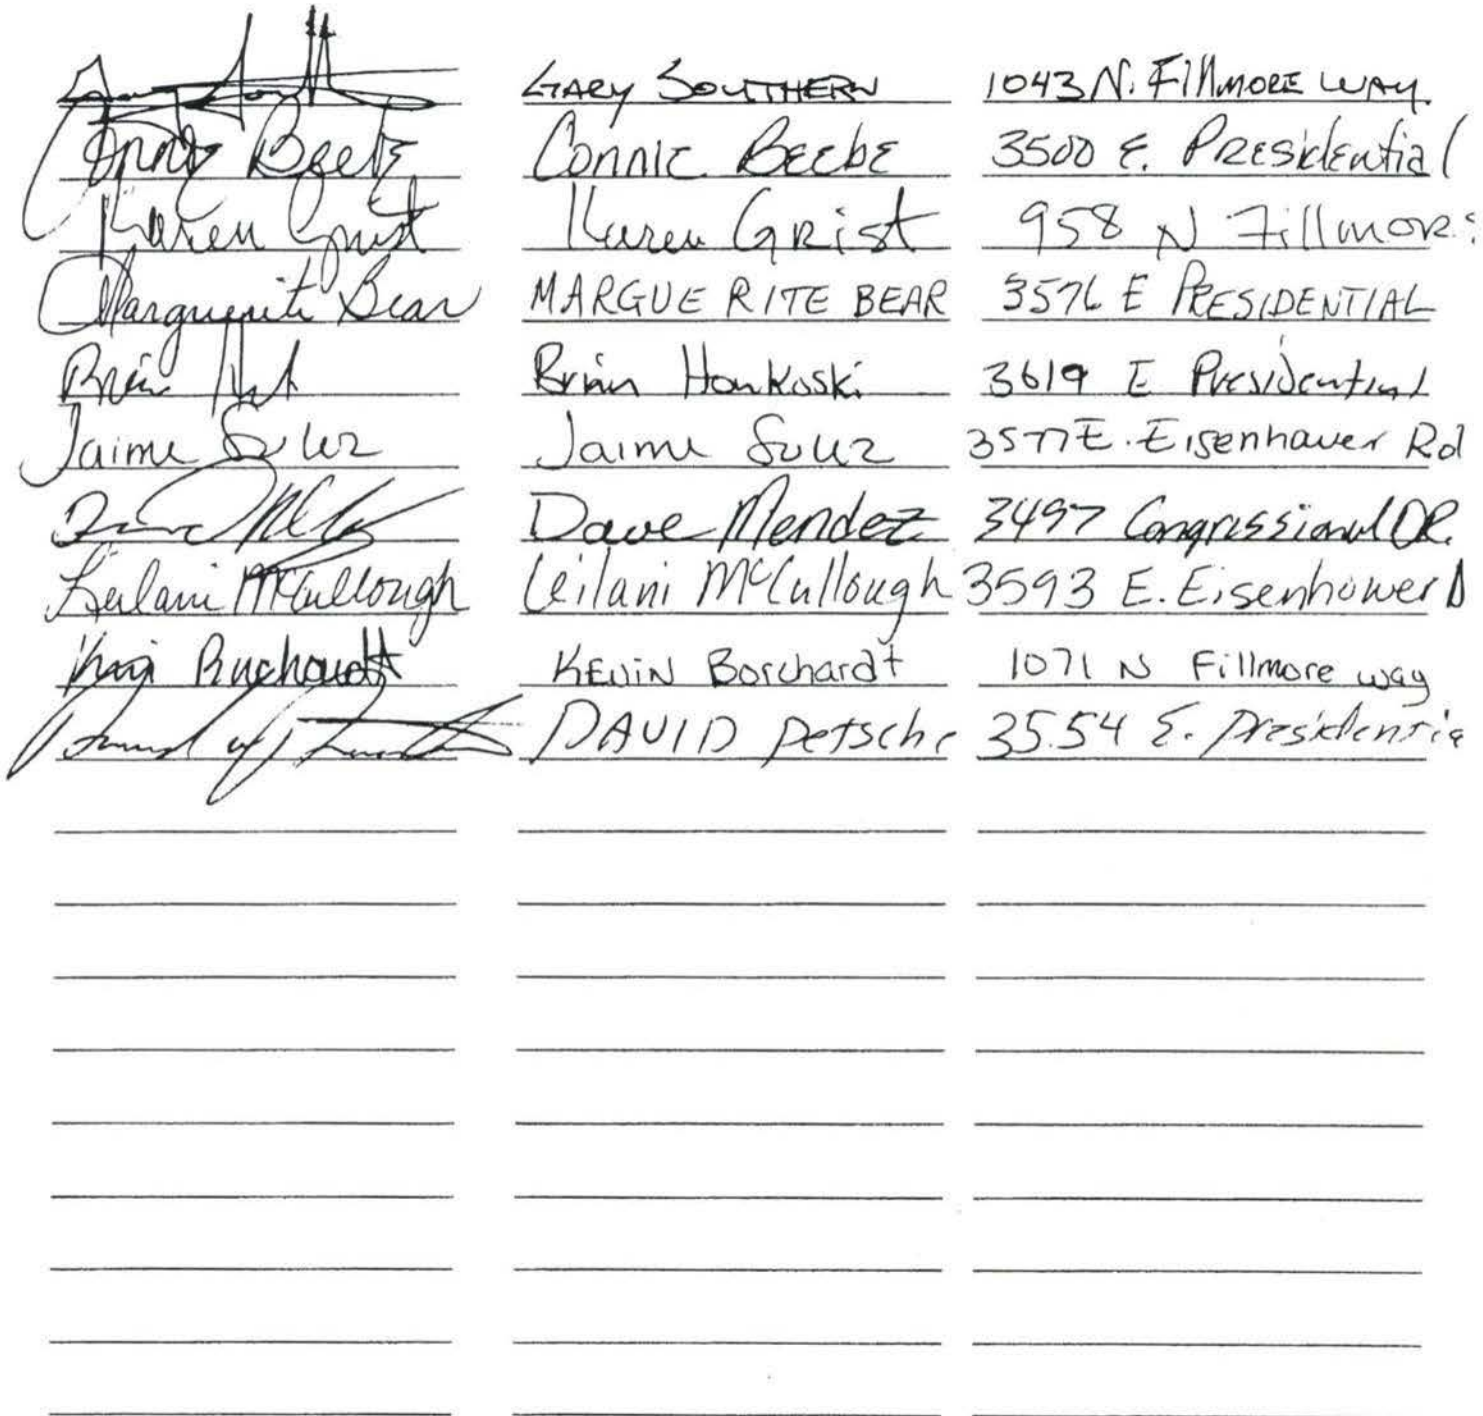 GARY SOUTHERN 1043 N. FIllMORE WAY
Connie Beebe Connie BEEbE 3500 E. PRESidential
Karen Grist Karen GRist 958 N Fillmore
Marguerite Bear MARGUERITE BEAR 3576 E PRESIDENTIAL
Brian Brian Honkoski 3619 E Presidential
Jaime Jaime 3577 E. Eisenhaver Rd
Dave Mendez 3497 Congressional DR.
Leilani McCullough Leilani McCullough 3593 E. Eisenhower D
Borchardt KEVIN Borchardt 1071 N Fillmore way
DAVID Petsche 3554 E. Presidentia